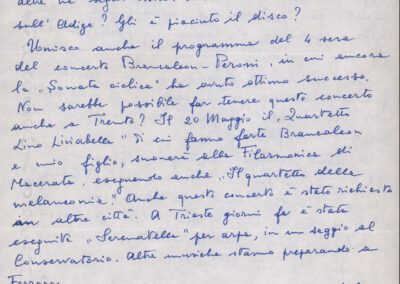 sull'Adige? Gli è piaciuto il disco?
Unisco anche il programma del 4 sera
del concerto Brancaleon-Peroni, in cui ancora
la "Sonata ciclica" ha avuto ottimo successo.
Non sarebbe possibile far tenere questo concerto
anche a Trento? Il 20 Maggio il "Quartetto
Lino Liviabella" di cui fanno parte Brancaleon
e mio figlio, suonerà alla Filarmonica di
Macerata, eseguendo anche "Il quartetto della
melanconia". Anche questo concerto è stato richiesto
in altre città. A Trieste giorni fa è stata
eseguita "Serenatella" per arpa, in un saggio al
Conservatorio. Altre musiche stanno preparando a